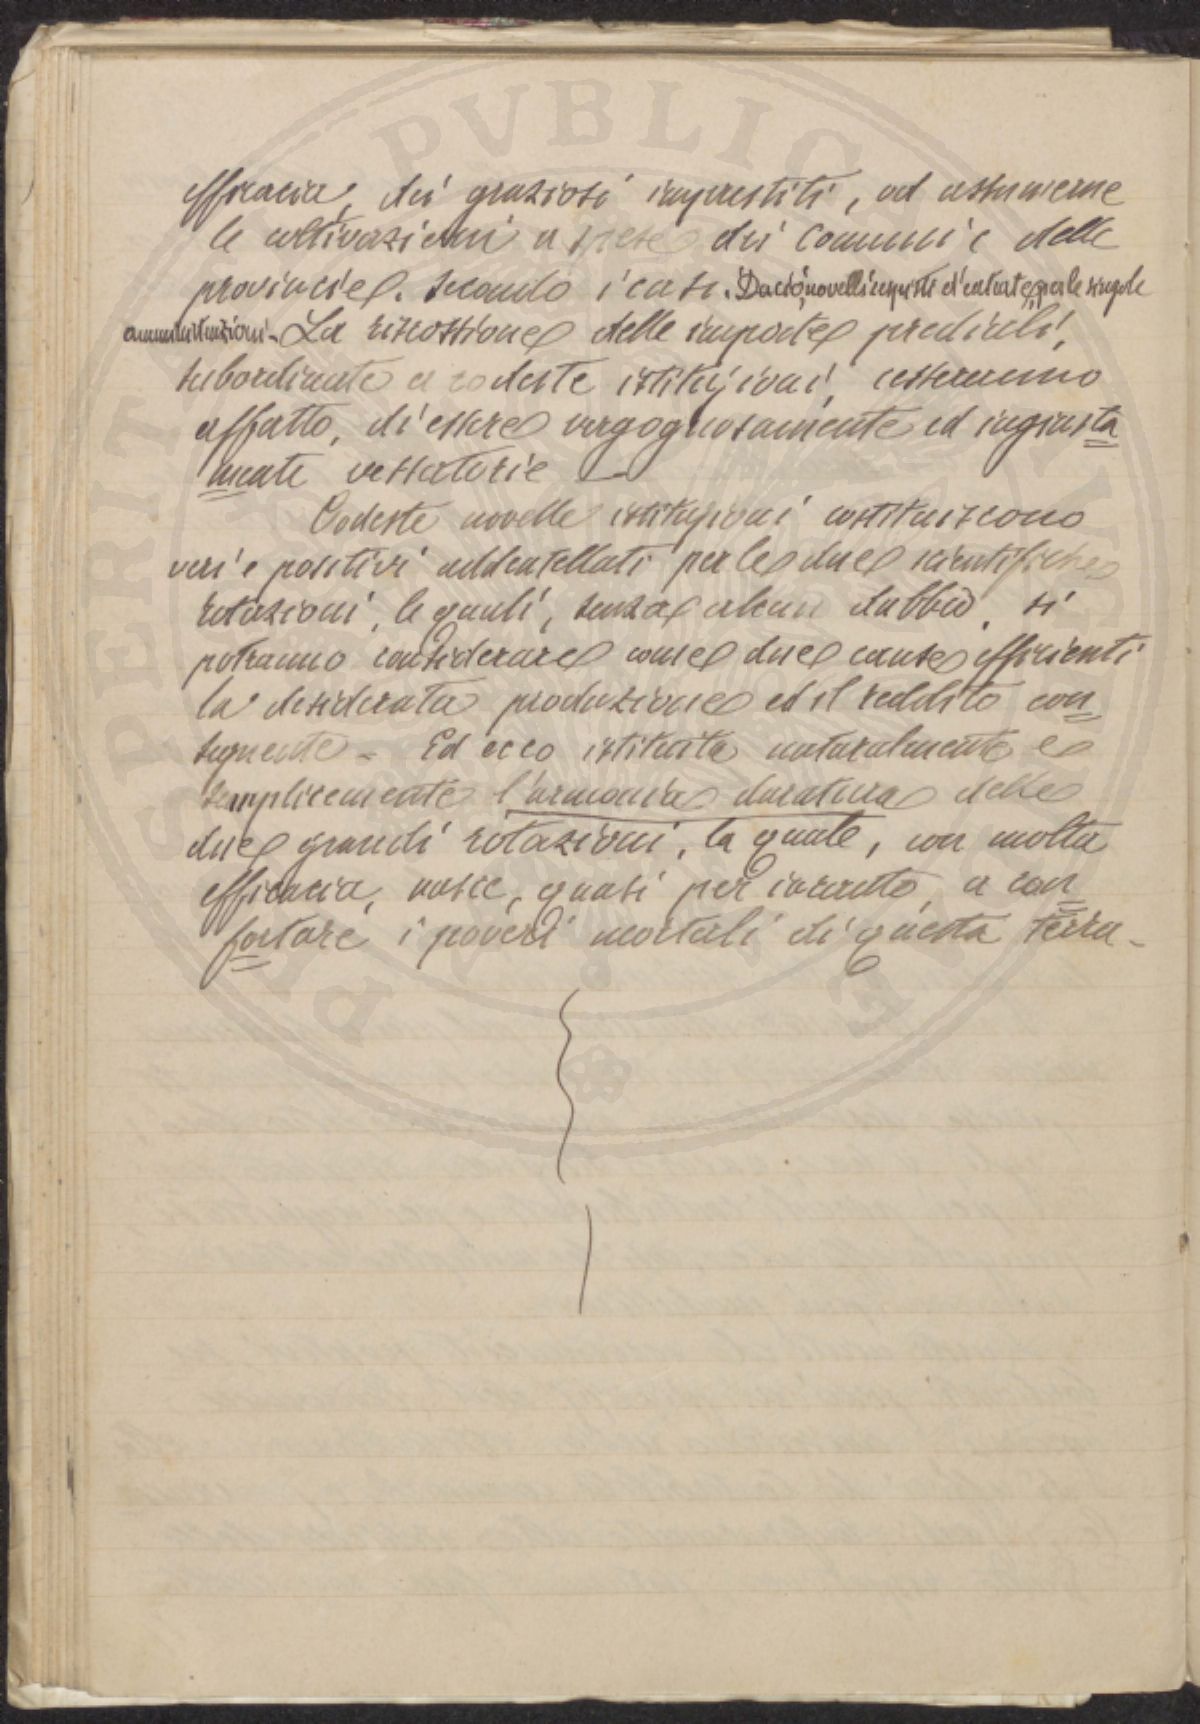 efficacia, dei graziosi imprestiti, ad assumerne
le coltivazioni a spese dei Comuni e delle
provincie. Secondo i casi. Da ciò, novelli cespiti d'entrate, per le singole
amministrazioni - La riscossione delle imposte prediali,
subordinate a codeste istituzioni, cesseranno
affatto, di essere vergognosamente ed ingiusta
mente vessatorie -
Codeste novelle istituzioni costituiscono
veri e positivi addentellati per le due scientifiche
rotazioni, le quali, senza alcun dubbio, si
potranno considerare come due cause efficienti
la desiderata produzione ed il reddito con
seguente - Ed ecco istituita naturalmente e
semplicemente l'armonia duratura delle
due grandi rotazioni, la quale, con molta
efficacia, nasce, quasi per incanto, a con
fortare i poveri mortali di questa terra -
PUBLICA
SPERITA